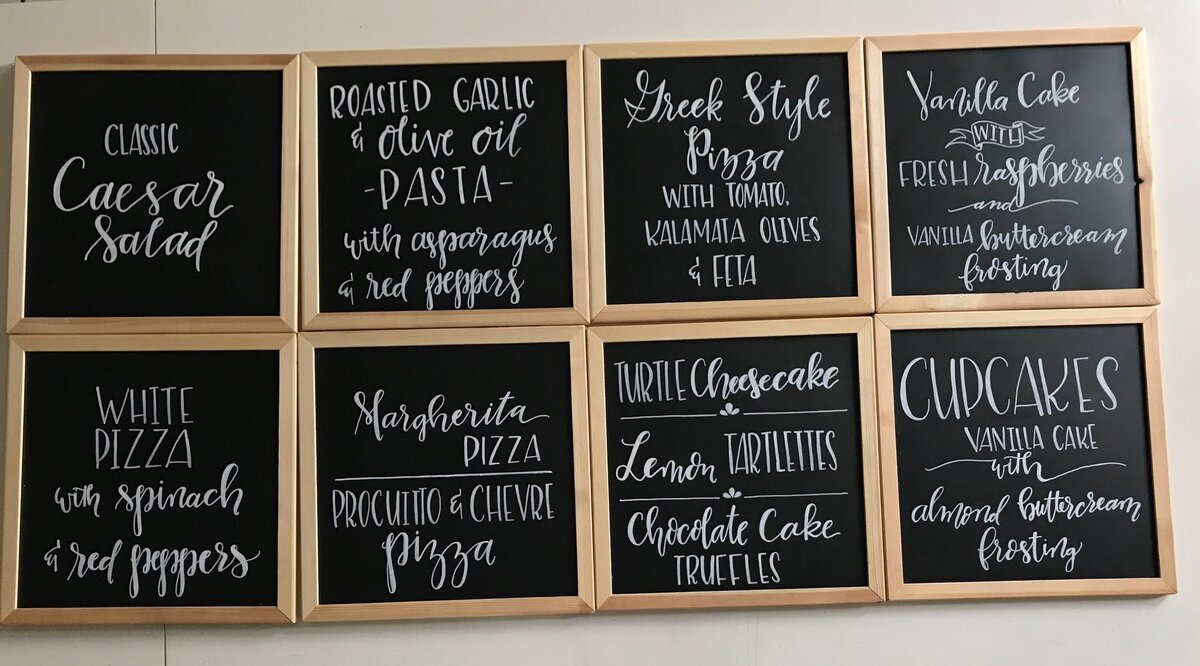 CLASSIC
Caesar
Salad
ROASTED GARLIC
& olive oil
-PASTA-
with asparagus
& red peppers
Greek Style
Pizza
WITH TOMATO,
KALAMATA OLIVES
& FETA
Vanilla Cake
WITH
FRESH raspberries
and
VANILLA buttercream
frosting
WHITE
PIZZA
with spinach
& red peppers
Margherita
PIZZA
PROCUITTO & CHEVRE
pizza
TURTLE Cheesecake
Lemon TARTLETTES
Chocolate Cake
TRUFFLES
CUPCAKES
VANILLA CAKE
with
almond buttercream
frosting